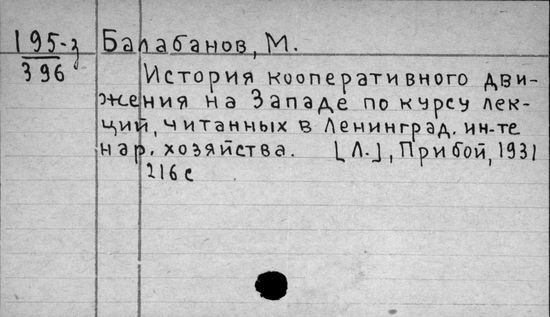 195-з Балабанов, М.
396
История кооперативного дви-
жения на Западе по курсу лек-
ций, читанных в Ленинград. ин-те
нар. хозяйства. [Л.], Прибой, 1931
216 с